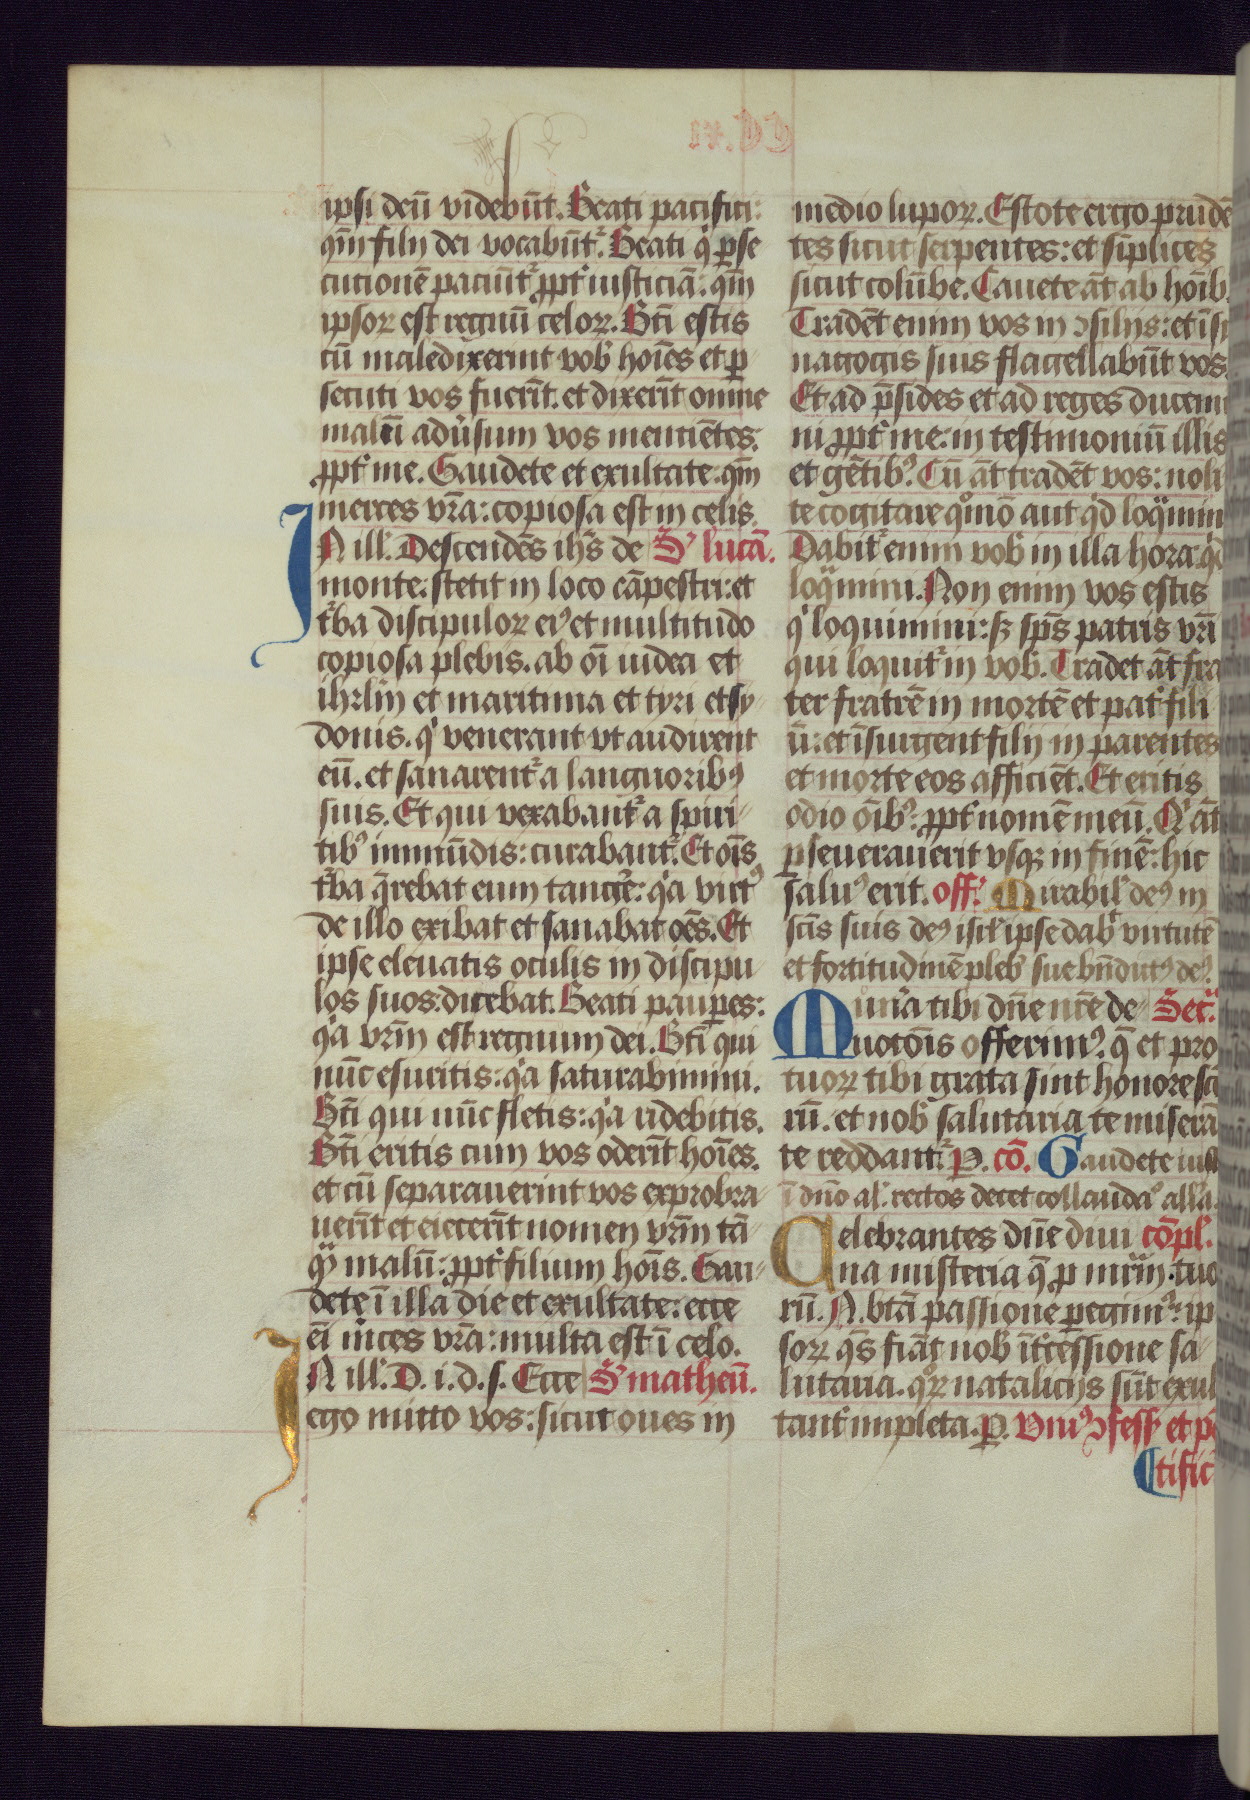 ipsi deū videbūt. Beati pacifici:
qm̄ filij dei vocabūtᷣ. Beati qͥ ꝑse
cutionē paciūtᷣ ꝓpt̓ iusticiā: qm̄
ipsoꝝ est regnū celoꝝ. Bt̄i estis
cū maledixerint vob̓ hoīes et ꝑ
secuti vos fuerīt. et dixerīt omne
malū adūsum vos mentiētes:
ꝓpt̓ me. Gaudete et exultate: qm̄
merces vr̄a: copiosa est in celis.
IN ill̓. Descendēs ih̄s de S̓ lucā.
monte: stetit in loco cāpestri: et
t̓ba discipuloꝝ eiꝰ et multitudo
copiosa plebis. ab oī iudea et
ihrlm̄ et maritima et tyri et sy
donis. qͥ venerant vt audirent
eū. et sanarentᷣ a languoribꝰ
suis. Et qui vexabantᷣ a spiri
tibꝰ inmūdis: curabantᷣ. Et oīs
t̓ba q̄rebat eum tang̓e: qͥa virtꝰ
de illo exibat et sanabat oēs. Et
ipse eleuatis oculis in discipu
los suos: dicebat. Beati pauꝑes:
qͥa vrm̄ est regnum dei. Bt̄i qui
nūc esuritis: qͥa saturabimini.
Bt̄i qui nūc fletis: qͥa ridebitis.
Bt̄i eritis cum vos oderīt hoīes.
et cū separauerint vos exprobra
uerīt et eiecerīt nomen vrm̄ tā
qͣ malū: ꝓpt̓ filium hoīs. Gau
dete ī illa die et exultate: ecce
eī m̓ces vr̄a: multa est ī celo.
IN ill̓. D. i. d. s. Ecce S̓ matheū.
ego mitto vos: sicut oues in
medio lupoꝝ. Estote ergo prudē
tes sicut serpentes: et sīplices
sicut colūbe. Cauete āt ab hoīb
Tradēt enim vos in ↄsilijs: et ī si
nagogis suis flagellabūt vos.
Et ad p̄sides et ad reges ducemi
ni ꝓpt̓ me: in testimoniū illis
et gētibꝰ. Cū āt tradēt vos: noli
te cogitare qͦmō aut qͥd loqͣmini
Dabitᷣ enim vob̓ in illa hora: qͥd
loqͣmini. Non enim vos estis
qͥ loquimini: sꝫ sp̄s patris vr̄i
qui loquitᷣ in vob̓. Tradet āt fra
ter fratrē in mortē et pat̓ fili
ū: et īsurgent filij in parentes
et morte eos afficiēt. Et eritis
odio oībꝰ: ꝓpt̓ nomē meū. Qͥ āt
ꝑseuerauerit vsqꝫ in finē: hic
saluꝰ erit. off̓. Mirabil̓ deꝰ in
sc̄is suis deꝰ isrl̓ ipse dab̓ virtutē
et fortitudinē pleb̓ sue bn̄dictꝰ deꝰ.
Mun̓a tibi dn̄e nr̄e de Secͬ.
uotōis offerimꝰ. q̄ et pro
tuoꝝ tibi grata sint honore sc̄o
rū. et nob̓ salutaria te miserā
te reddantᷣ. P. cō. Gaudete iusti
ī dn̄o al̓. rectos decet collaudaᵒ all̓a.
Celebrantes dn̄e diui cōpl̓.
na misteria q̄ ꝓ mr̄m tuo
rū. N. btā passione pegimꝰ: ip
soꝝ qs̄ fiāt nob̓ īt̓cessione sa
lutaria. qͦꝝ natalicijs sūt exul
tant̓ impleta. p. Vniꝰ ↄfess̓ et pō
tific